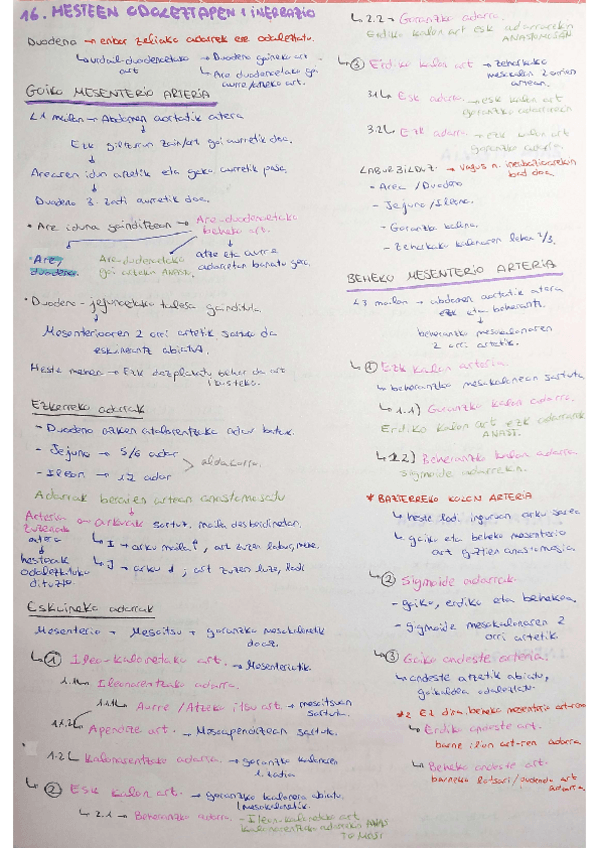 16. HESTEEN ODOLEZTAPEN I INERBAZIO
Duodeno → enbor zeliako adarrek ere odoleztatu.
↳ urdail-duodenoetako art
↳ Duodeno gaineko art.
↳ Are duodenoetako goi aurre/atzeko art.
GOIKO MESENTERIO ARTERIA
L1 mailan → Abdomen aortatik atera
↓
Ezk giltzurrun zain/art goi aurretik doa.
↓
Arearen idun atzetik eta gako aurretik pasa.
↓
Duodeno 3. zati aurretik doa.
• Are iduna gainditzean → Are-duodenoetako beheko art.
• Are, duodeno.
Are-duodenoetako goi arteriekin ANAST.
atze eta aurre adarretan banatu gero.
• Duodeno-jejunoetako tolesa gaindituta.
↓
Mesenterioaren 2 orri artetik sartu da
eskuinerantz abiatuz.
Heste mehea → Ezk desplazatu behar da art ikusteko.
Ezkerreko adarrak
- Duodeno azken atalarentzako adar batuk.
- Jejuno → 5/6 adar
- Ileon → 12 adar
aldakorra.
Adarrak beraien artean anastomosatu
Arteria zuzenak ← arkuak sortuz. maila desberdinetan.
atera
↓
hesteak odoleztatuko dituzte.
↳ I → arku maila ↑, art zuzen labur, mehe.
↳ J → arku ↓; art zuzen luze, lodi
Eskuineko adarrak
Mesenterio → Mesoitsu → goranzko mesokolonetik doaz.
↳ ① Ileo-kolonetako art. → Mesenteriotik.
1.1 ↳ Ileonarentzako adarra.
1.1.1 ↳ Aurre / Atzeko itsu art. → mesoitsuan sartuta.
1.1.2 ↳ Apendize art. → Mesoapendizean sartuta.
1.2 ↳ Kolonarentzako adarra. → goranzko kolonaren 1. zatia
↳ ② Esk kolon art. → goranzko kolonera abiatu
↳ mesokolonetik.
↳ 2.1 → Beheranzko adarra. - Ileon-kolonetako art kolonarentzako adarrekin ANASTOMOSI
↳ 2.2 → Goranzko adarra.
Erdiko kolon art esk adarrarekin ANASTOMOSAN
↳ ③ Erdiko kolon art → zeharkako mesokolon 2 orrien artean.
3.1 ↳ Esk adarra → esk kolon art goranzko adarraren
3.2 ↳ Ezk adarra → ezk kolon art goranzko adarra
LABURBILDUZ: → Vagus n. inerbazioarekin bat doa.
- Area / Duodeno
- Jejuno / Ileona.
- Goranzko kolona.
- Zeharkako kolonaren lehen 2/3.
BEHEKO MESENTERIO ARTERIA
L3 mailan → abdomen aortatik atera
ezk eta beherantz.
↓
beheranzko mesokolonaren
2 orri artetik.
↳ ① Ezk kolon arteria.
↳ beheranzko mesokolonean sartuta
↳ 1.1) Goranzko kolon adarra.
Erdiko kolon art ezk adarrarekin ANAST.
↳ 1.2) Beheranzko kolon adarra
sigmoide adarrekin.
* BAZTERREKO KOLON ARTERIA
↳ heste lod. inguruan arku sarea
↳ goiko eta beheko mesenterio
art guztien anastomosia
↳ ② Sigmoide adarrak.
- goiko, erdiko eta behekoa.
- sigmoide mesokolonaren 2
orri artetik.
↳ ③ Goiko ondeste arteria.
↳ ondeste atzetik abiatu,
goikaldea odoleztatu.
*2 Ez dira beheko mesenterio arteriaren
↳ Erdiko ondeste art.
barne ilion art-ren adarra
↳ Beheko ondeste art.
barneko lotsari/ pudenda art adarra.